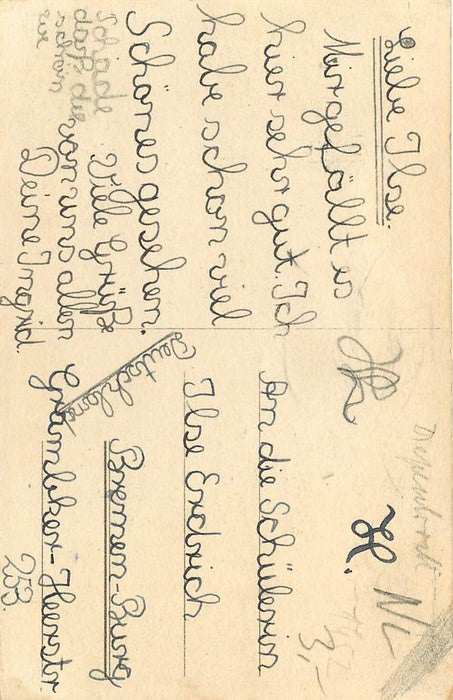 Liebe Ilse.
Mir gefällt es
hier sehr gut. Ich
habe schon viel
Schönes gesehen.
Viele Grüße
von uns allen
Deine Ingrid.
Schade
daß die
schon
An die Schülerin
Ilse Erdrich
Bremen-Burg
Grambker-Heerstr
253.
Deutschland
H.
Ni
3,-